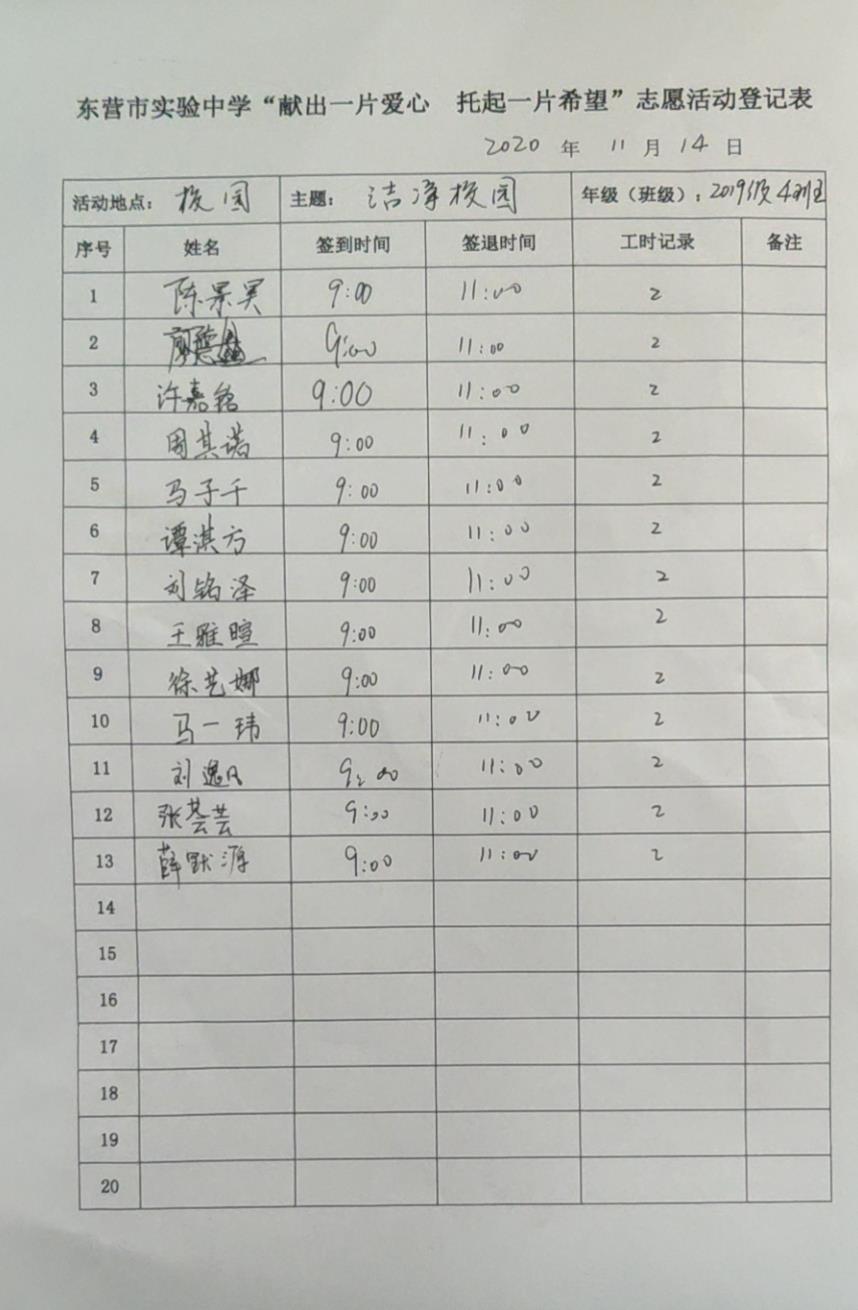 东营市实验中学“献出一片爱心 托起一片希望”志愿活动登记表
2020 年 11 月 14 日
活动地点: 校园 主题: 洁净校园 年级（班级）: 2019级4班
序号 姓名 签到时间 签退时间 工时记录 备注
1 陈景昊 9:00 11:00 2
2 9:00 11:00 2
3 许嘉铭 9:00 11:00 2
4 周其诺 9:00 11:00 2
5 马子千 9:00 11:00 2
6 谭淇方 9:00 11:00 2
7 刘铭泽 9:00 11:00 2
8 王雅暄 9:00 11:00 2
9 徐艺娜 9:00 11:00 2
10 马一玮 9:00 11:00 2
11 刘逸凡 9:00 11:00 2
12 张荟芸 9:00 11:00 2
13 薛默源 9:00 11:00 2
14
15
16
17
18
19
20